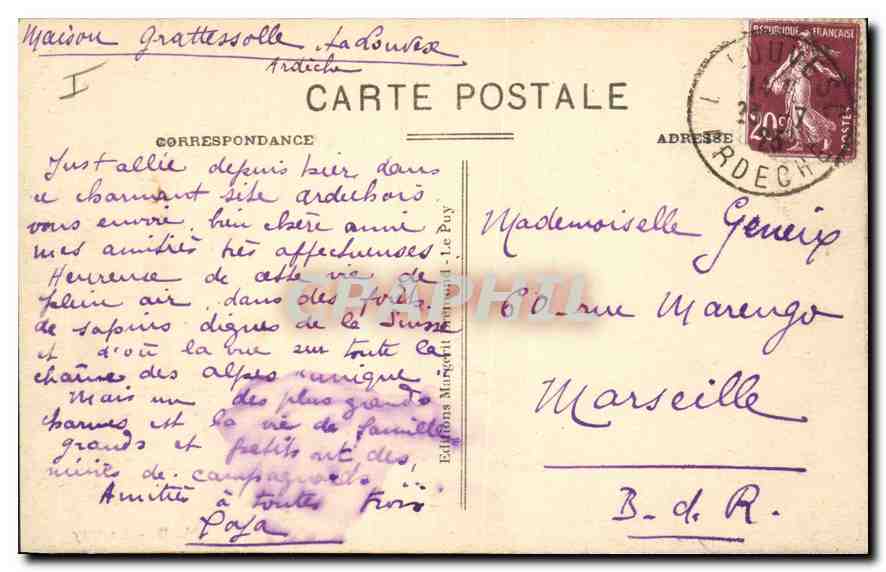 Maison Grattessolle, La Louvesc
Ardèche
I
CARTE POSTALE
CORRESPONDANCE
ADRESSE
RÉPUBLIQUE FRANÇAISE
20c
POSTES
LOUVESC
ARDECHE
depuis hier dans
ce charmant site ardéchois
vous envoie, bien chère amie
mes amitiés très affectueuses
Heureuse de cette vie de
plein air, dans des forêts
de sapins dignes de la Suisse
et d'où la vue sur toute la
chaîne des alpes unique
Mais un des plus grands
charmes est la vie de famille
grands et petits ont des
mines de campagnards
Amitiés à toutes trois
Editions Margerit - Le Puy
CPAPHIL
Mademoiselle Geneix
60 rue Marengo
Marseille
B. d. R.